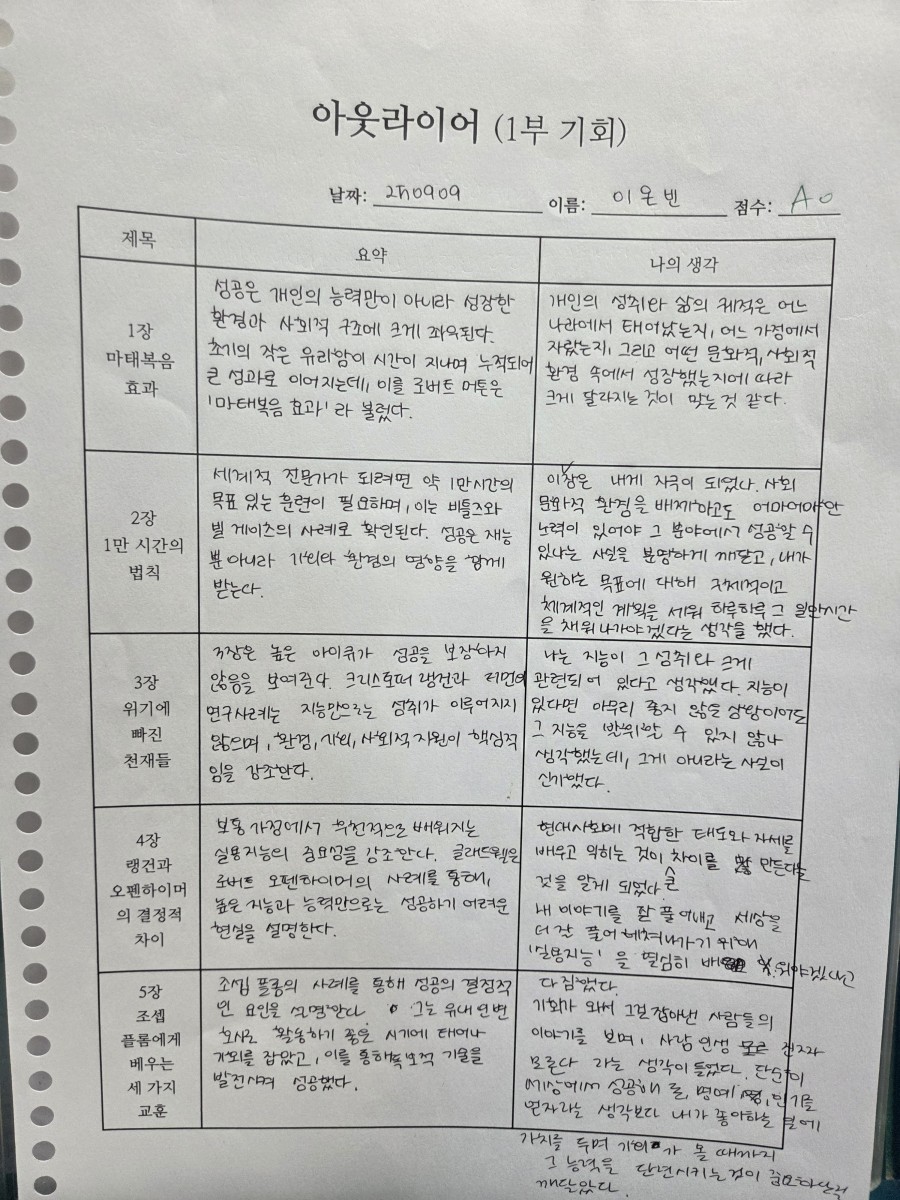 아웃라이어 (1부 기회)
날짜: 250909 이름: 이온빈 점수: A0
제목
요약
나의 생각
1장
마태복음
효과
성공은 개인의 능력만이 아니라 성장한
환경과 사회적 구조에 크게 좌우된다.
초기의 작은 유리함이 시간이 지나며 누적되어
큰 성과로 이어지는데, 이를 로버트 머튼은
'마태복음 효과' 라 불렀다.
개인의 성취와 삶의 궤적은 어느
나라에서 태어났는지, 어느 가정에서
자랐는지, 그리고 어떤 문화적, 사회적
환경 속에서 성장했는지에 따라
크게 달라지는 것이 맞는 것 같다.
2장
1만 시간의
법칙
세계적 전문가가 되려면 약 1만시간의
목표 있는 훈련이 필요하며, 이는 비틀즈와
빌 게이츠의 사례로 확인된다. 성공은 재능
뿐 아니라 기회와 환경의 영향을 함께
받는다.
이 장은 내게 자극이 되었다. 사회
문화적 환경을 배제하고도 어마어마한
노력이 있어야 그 분야에서 성공할 수
있다는 사실을 분명하게 깨닫고, 내가
원하는 목표에 대해 구체적이고
체계적인 계획을 세워 하루하루 그 일만시간
을 채워나가야겠다는 생각을 했다.
3장
위기에
빠진
천재들
3장은 높은 아이큐가 성공을 보장하지
않음을 보여준다. 크리스토퍼 랭건과 터먼의
연구사례는 지능만으로는 성취가 이루어지지
않으며, 환경, 기회, 사회적 지원이 핵심적
임을 강조한다.
나는 지능이 그 성취와 크게
관련되어 있다고 생각했다. 지능이
있다면 아무리 좋지 않을 상황이어도
그 지능을 발휘할 수 있지 않나
생각했는데, 그게 아니라는 사실이
신기했다.
4장
랭건과
오펜하이머
의 결정적
차이
보통 가정에서 후천적으로 배워지는
실용지능의 중요성을 강조한다. 글래드웰은
로버트 오펜하이머의 사례를 통해,
높은 지능과 능력만으로는 성공하기 어려운
현실을 설명한다.
현대사회에 적합한 태도와 자세를
배우고 익히는 것이 큰 차이를 만든다는
것을 알게 되었다.
내 이야기를 잘 풀어내고 세상을
더 잘 풀어 헤쳐나가기 위해
'실용지능' 을 열심히 배워야겠다고
다짐했다.
5장
조셉
플롬에게
베우는
세 가지
교훈
조셉 플롬의 사례를 통해 성공의 결정적
인 요인을 설명한다. 그는 유대인 변
호사로 활동하기 좋은 시기에 태어나
기회를 잡았고, 이를 통해 독보적 기술을
발전시켜 성공했다.
기회가 와서 그걸 잡아낸 사람들의
이야기를 보며, 사람 인생 진짜
모른다 라는 생각이 들었다. 단순히
세상에서 성공해 돈, 명예, 인기를
얻자라는 생각보다 내가 좋아하는 일에
가치를 두며 기회가 올 때까지
그 능력을 단련시키는 것이 중요하단걸
깨달았다.